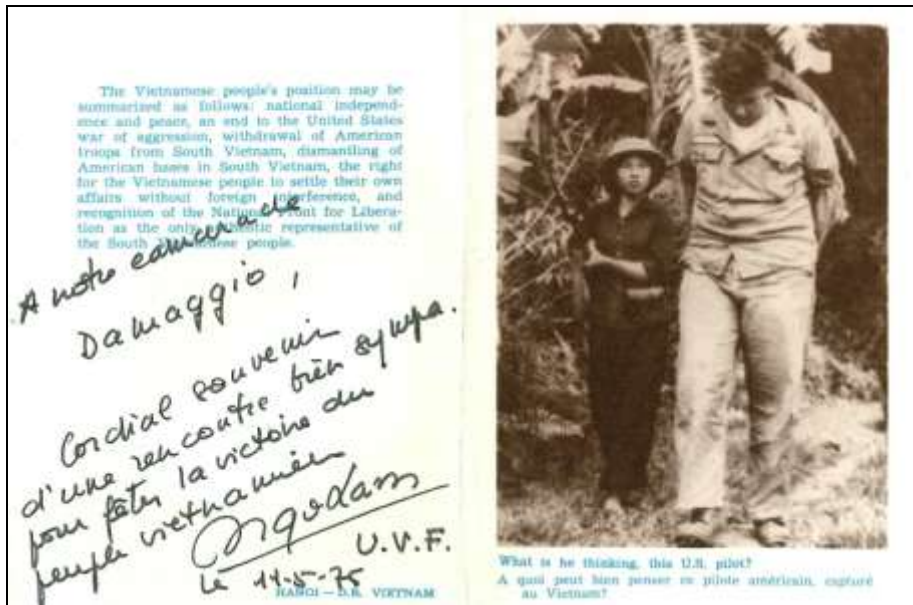 The Vietnamese people's position may be
summarized as follows: national independ-
ence and peace, an end to the United States
war of aggression, withdrawal of American
troops from South Vietnam, dismantling of
American bases in South Vietnam, the right
for the Vietnamese people to settle their own
affairs without foreign interference, and
recognition of the National Front for Libera-
tion as the only authentic representative of
the South Vietnamese people.
A notre camarade
Damaggio,
Cordial souvenir
d'une rencontre bien sympa.
pour fêter la victoire du
peuple vietnamien
U.V.F.
Le 11-5-75
HANOI — D.R. VIETNAM
What is he thinking, this U.S. pilot?
A quoi peut bien penser ce pilote américain, capturé
au Vietnam?